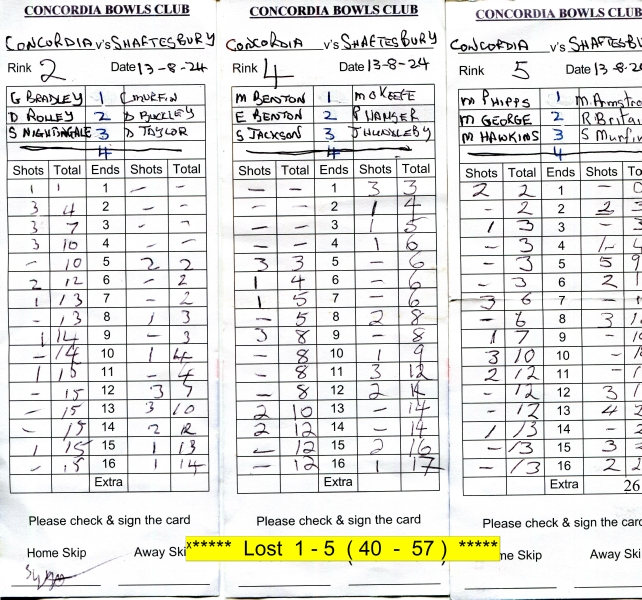 CONCORDIA BOWLS CLUB
CONCORDIA v's SHAFTESBURY
Rink 2 Date 13-8-24
G BRADLEY 1
D ROLLEY 2 D BUCKLEY
S NIGHTINGALE 3 D TAYLOR
4
Shots Total Ends Shots Total
1 1 1 - -
3 4 2 - -
3 7 3 - -
3 10 4 - -
- 10 5 2 2
2 12 6 - 2
1 13 7 - 2
- 13 8 1 3
1 14 9 - 3
- 14 10 1 4
1 15 11 - 4
- 15 12 3 7
- 15 13 3 10
- 15 14 2 12
1 15 15 1 13
- 15 16 1 14
Extra
Please check & sign the card
Home Skip Away Ski
CONCORDIA BOWLS CLUB
CONCORDIA v's SHAFTESBURY
Rink 4 Date 13-8-24
M BENTON 1 M O KEEFE
E BENTON 2 P HAMSER
S JACKSON 3 J HUCKLEBY
4
Shots Total Ends Shots Total
- - 1 3 3
- - 2 1 4
- - 3 1 5
- - 4 1 6
3 3 5 - 6
1 4 6 - 6
1 5 7 - 6
- 5 8 2 8
3 8 9 - 8
- 8 10 1 9
- 8 11 3 12
- 8 12 2 14
2 10 13 - 14
2 12 14 - 14
- 12 15 2 16
- 12 16 1 17
Extra
Please check & sign the card
CONCORDIA BOWLS CLUB
CONCORDIA v's SHAFTESB
Rink 5 Date 13-8-2
M PHIPPS 1 M. Armstro
M GEORGE 2 R Britai
M HAWKINS 3 S Murfi
4
Shots Total Ends Shots To
2 2 1 - 0
- 2 2 3 3
1 3 3 - 3
- 3 4 1 4
- 3 5 5 9
- 3 6 2 1
3 6 7 - 1
- 6 8 3 1
1 7 9 - 1
3 10 10 - 1
2 12 11 - 1
- 12 12 3 1
- 12 13 4 2
1 13 14 - 2
- 13 15 3 2
- 13 16 2 2
Extra 26
Please check & sign the card
me Skip Away Ski
***** Lost 1 - 5 ( 40 - 57 ) *****